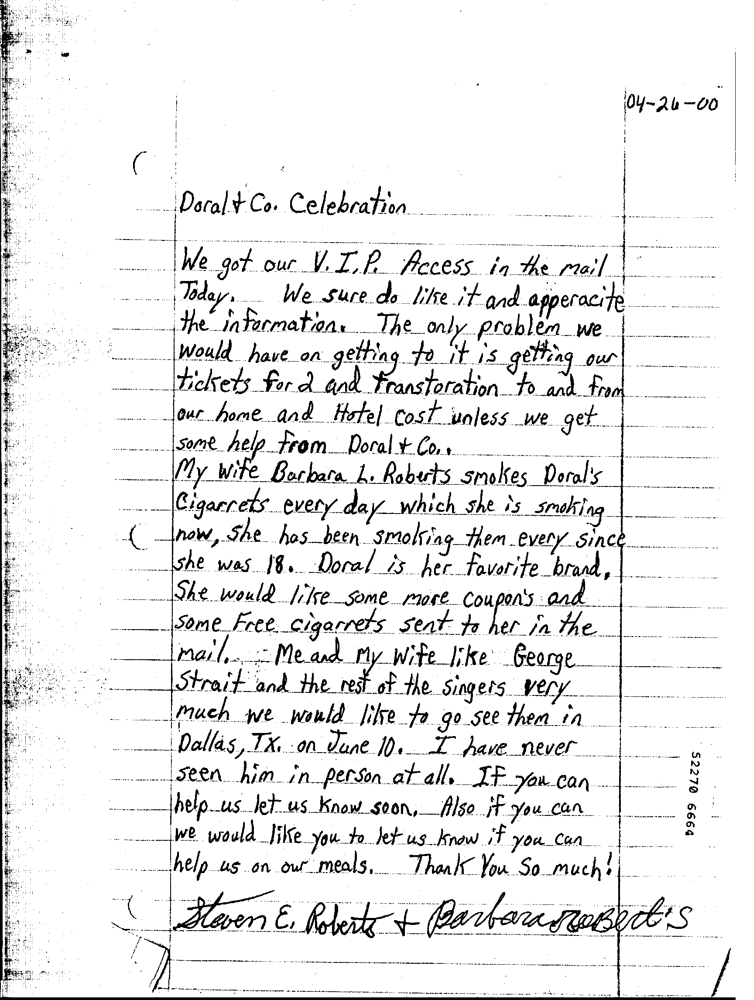 04-26-00
Doral & Co. Celebration
We got our V.I.P. Access in the mail
Today. We sure do like it and apperacite
the information. The only problem we
would have on getting to it is getting our
tickets for 2 and transtoration to and from
our home and Hotel cost unless we get
some help from Doral & Co..
My Wife Barbara L. Roberts smokes Doral's
Cigarrets every day which she is smoking
now, she has been smoking them every since
she was 18. Doral is her favorite brand.
She would like some more coupon's and
some Free cigarrets sent to her in the
mail. Me and My Wife like George
Strait and the rest of the singers very
much we would like to go see them in
Dallas, TX. on June 10. I have never
seen him in person at all. If you can
help us let us know soon. Also if you can
we would like you to let us know if you can
help us on our meals. Thank You So much!
Steven E. Roberts + Barbara roBert's
52270 6664